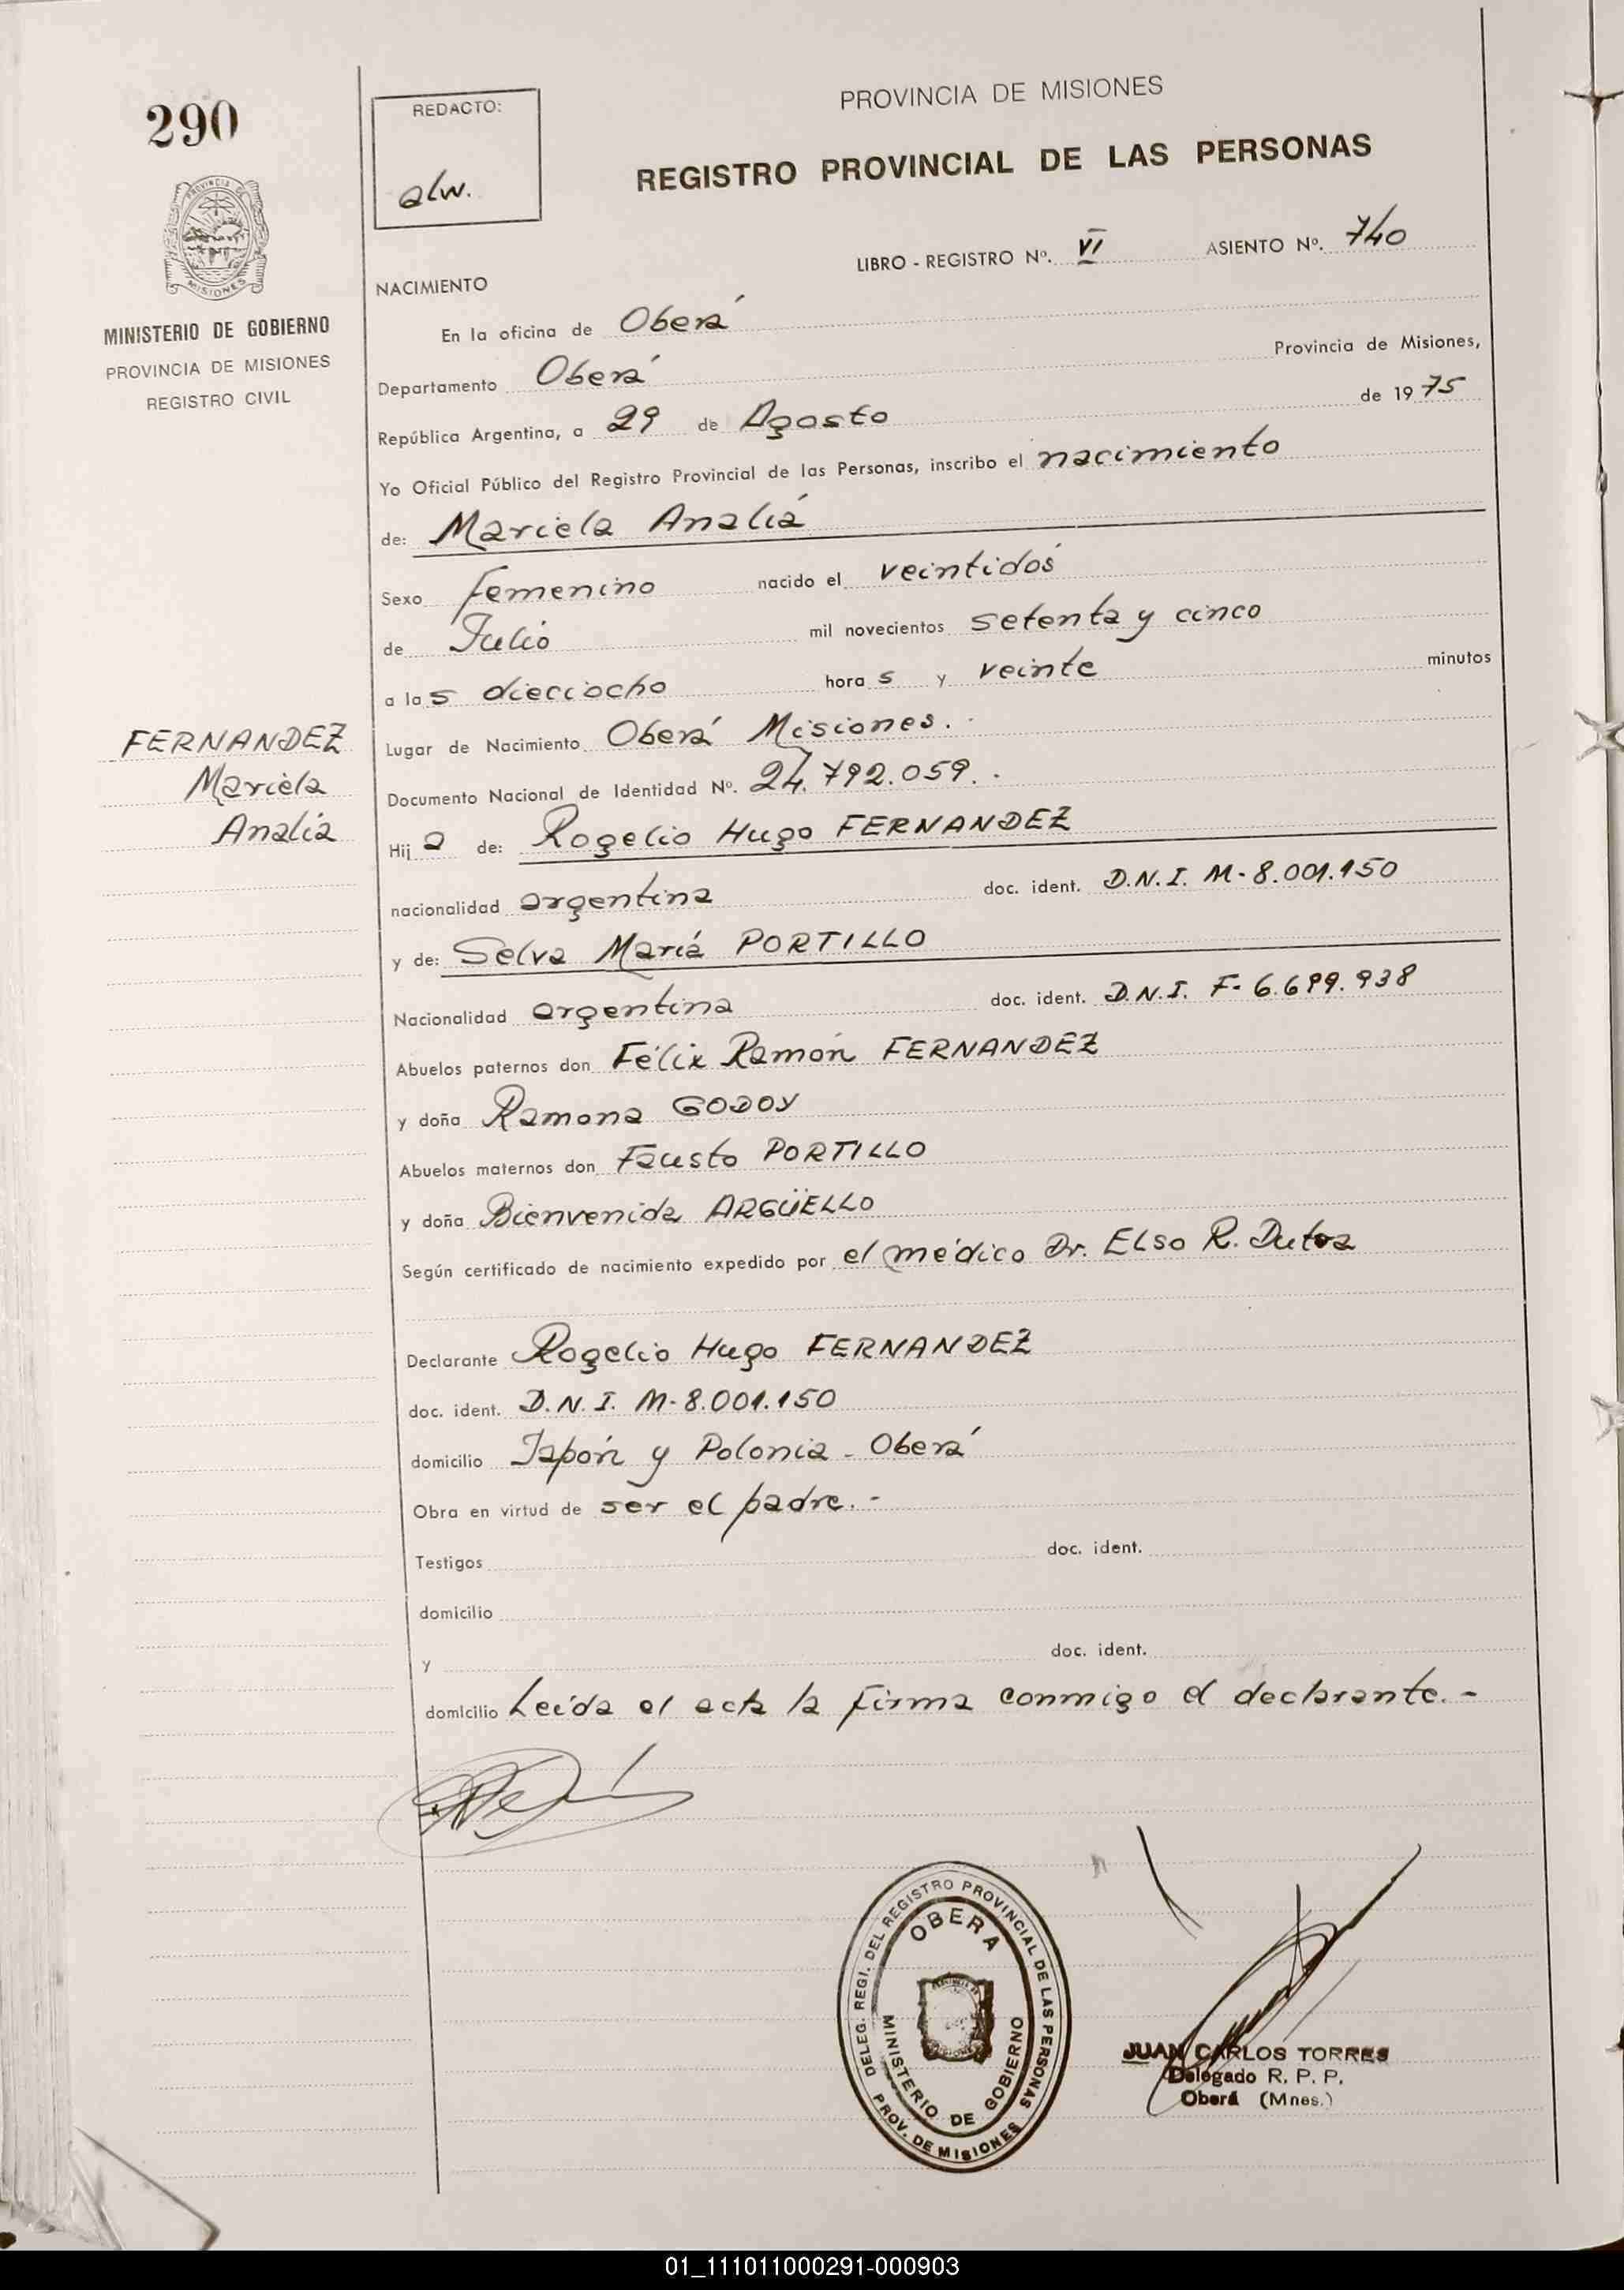 290
REDACTO:
alw.
PROVINCIA DE MISIONES
REGISTRO PROVINCIAL DE LAS PERSONAS
PROVINCIA DE
MISIONES
LIBRO - REGISTRO Nº. VI ASIENTO Nº. 740
MINISTERIO DE GOBIERNO
PROVINCIA DE MISIONES
REGISTRO CIVIL
NACIMIENTO
En la oficina de Oberá
Departamento Oberá Provincia de Misiones,
República Argentina, a 29 de Agosto de 1975
Yo Oficial Público del Registro Provincial de las Personas, inscribo el nacimiento
de: Mariela Analía
Sexo Femenino nacido el veintidós
de Julio mil novecientos setenta y cinco
a las dieciocho horas y veinte minutos
FERNANDEZ
Mariela
Analía
Lugar de Nacimiento Oberá Misiones.-
Documento Nacional de Identidad Nº. 24.792.059.-
Hija de: Rogelio Hugo FERNANDEZ
nacionalidad argentina doc. ident. D.N.I. M-8.001.150
y de: Selva María PORTILLO
Nacionalidad argentina doc. ident. D.N.I. F-6.699.938
Abuelos paternos don Félix Ramón FERNANDEZ
y doña Ramona GODOY
Abuelos maternos don Fausto PORTILLO
y doña Bienvenida ARGÜELLO
Según certificado de nacimiento expedido por el médico Dr. Elso R. Dutra
Declarante Rogelio Hugo FERNANDEZ
doc. ident. D.N.I. M-8.001.150
domicilio Japón y Polonia - Oberá
Obra en virtud de ser el padre.-
Testigos doc. ident.
domicilio
y doc. ident.
domicilio Leída el acta la firma conmigo el declarante.-
DELEG. REGI. DEL REGISTRO PROVINCIAL DE LAS PERSONAS
OBERA
MINISTERIO DE GOBIERNO
PROV. DE MISIONES
JUAN CARLOS TORRES
Delegado R. P. P.
Oberá (Mnes.)
01_111011000291-000903